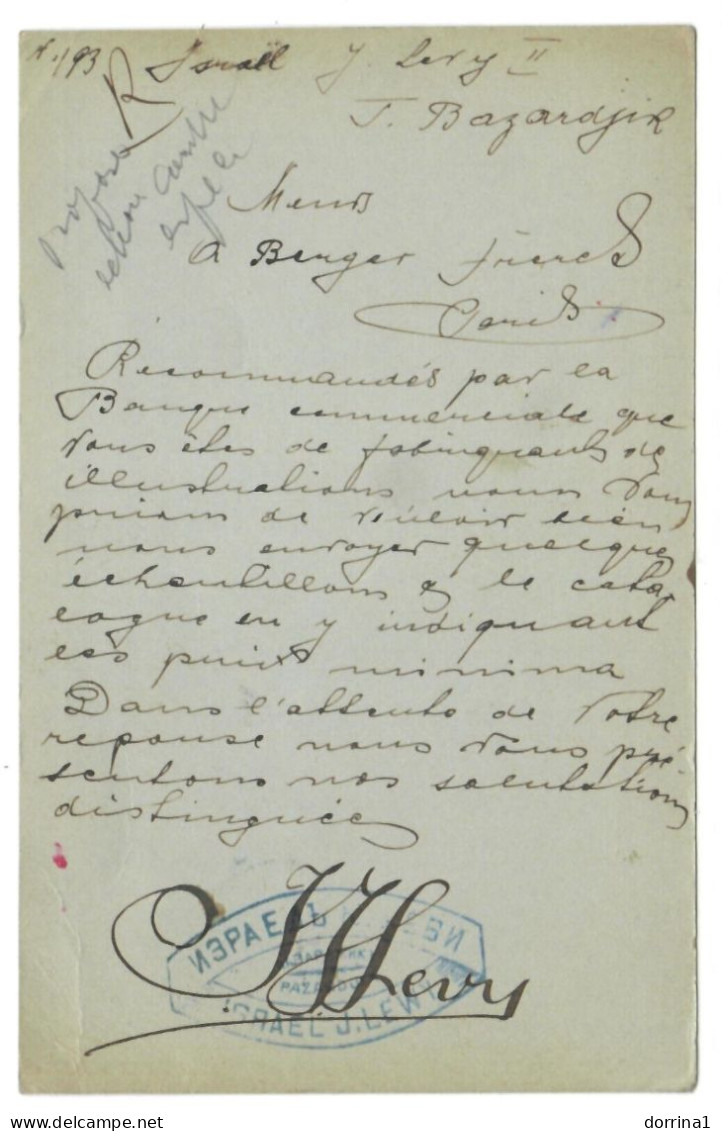 Israël J. Levy II
T. Bazardjik
Menrs
A Berger frères
Paris
Recommandés par la
Banque commerciale que
vous êtes de fabriquants de
illustrations nous vous
prions de vouloir bien
nous envoyer quelques
échantillons et le cata
logue en y indiquant
les prix minima
Dans l'attente de votre
reponse nous vous pré
sentons nos salutations
distinguées
J. Levy
ИЗРАЕЛЪ ВИ
ISRAEL J. LEWY
dorrina1